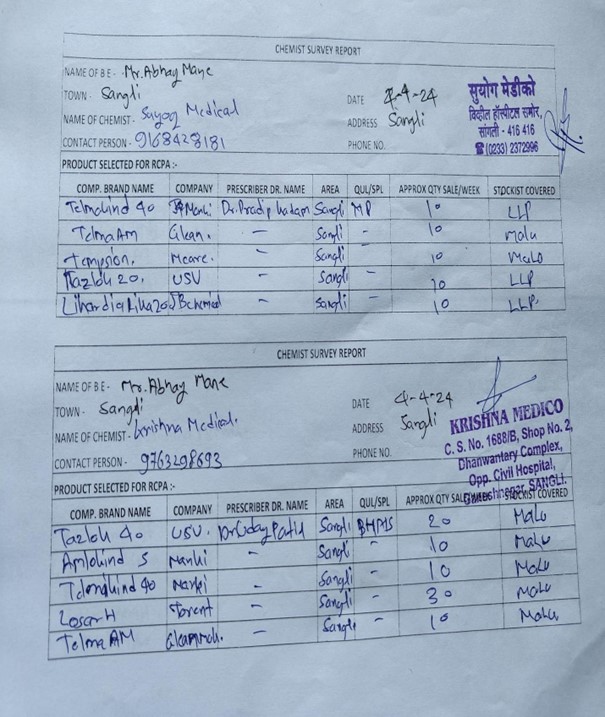 CHEMIST SURVEY REPORT
NAME OF B E - Mr. Abhay Mane
TOWN - Sangli
DATE 4-4-24
NAME OF CHEMIST - Sayog Medical
ADDRESS Sangli
CONTACT PERSON - 9168428181
PHONE NO.
सुयोग मेडीको
विद्यील हॉस्पीटल समोर,
सांगली - 416 416
☎ (0233) 2372996
PRODUCT SELECTED FOR RCPA :-
COMP. BRAND NAME COMPANY PRESCRIBER DR. NAME AREA QUL/SPL APPROX QTY SALE/WEEK STOCKIST COVERED
Telmakind 40 Manki Dr. Pradip Kadam Sangli MP 10 LLP
Telma AM Glen. - Sangli - 10 Malu
Mcare. - Sangli - 10 Malu
Tazloc 20. USV - Sangli - 10 LLP
- Sangli - 10 LLP.
CHEMIST SURVEY REPORT
NAME OF B E - Mr. Abhay Mane
TOWN - Sangli
DATE 4-4-24
NAME OF CHEMIST - Krishna Medical.
ADDRESS Sangli
CONTACT PERSON - 9763298693
PHONE NO.
KRISHNA MEDICO
C. S. No. 1688/B, Shop No. 2,
Dhanwantary Complex,
Opp. Civil Hospital,
Ganeshnagar, SANGLI.
PRODUCT SELECTED FOR RCPA :-
COMP. BRAND NAME COMPANY PRESCRIBER DR. NAME AREA QUL/SPL APPROX QTY SALE/WEEK STOCKIST COVERED
Tazloc 40 USV. Dr Uday Patil Sangli BHMS 20 Malu
Amlokind 5 Manki - Sangli - 10 Malu
Telmakind 40 Manki - Sangli - 10 Malu
Losar H Torent - Sangli - 30 Malu
Telma AM - Sangli - 10 Malu